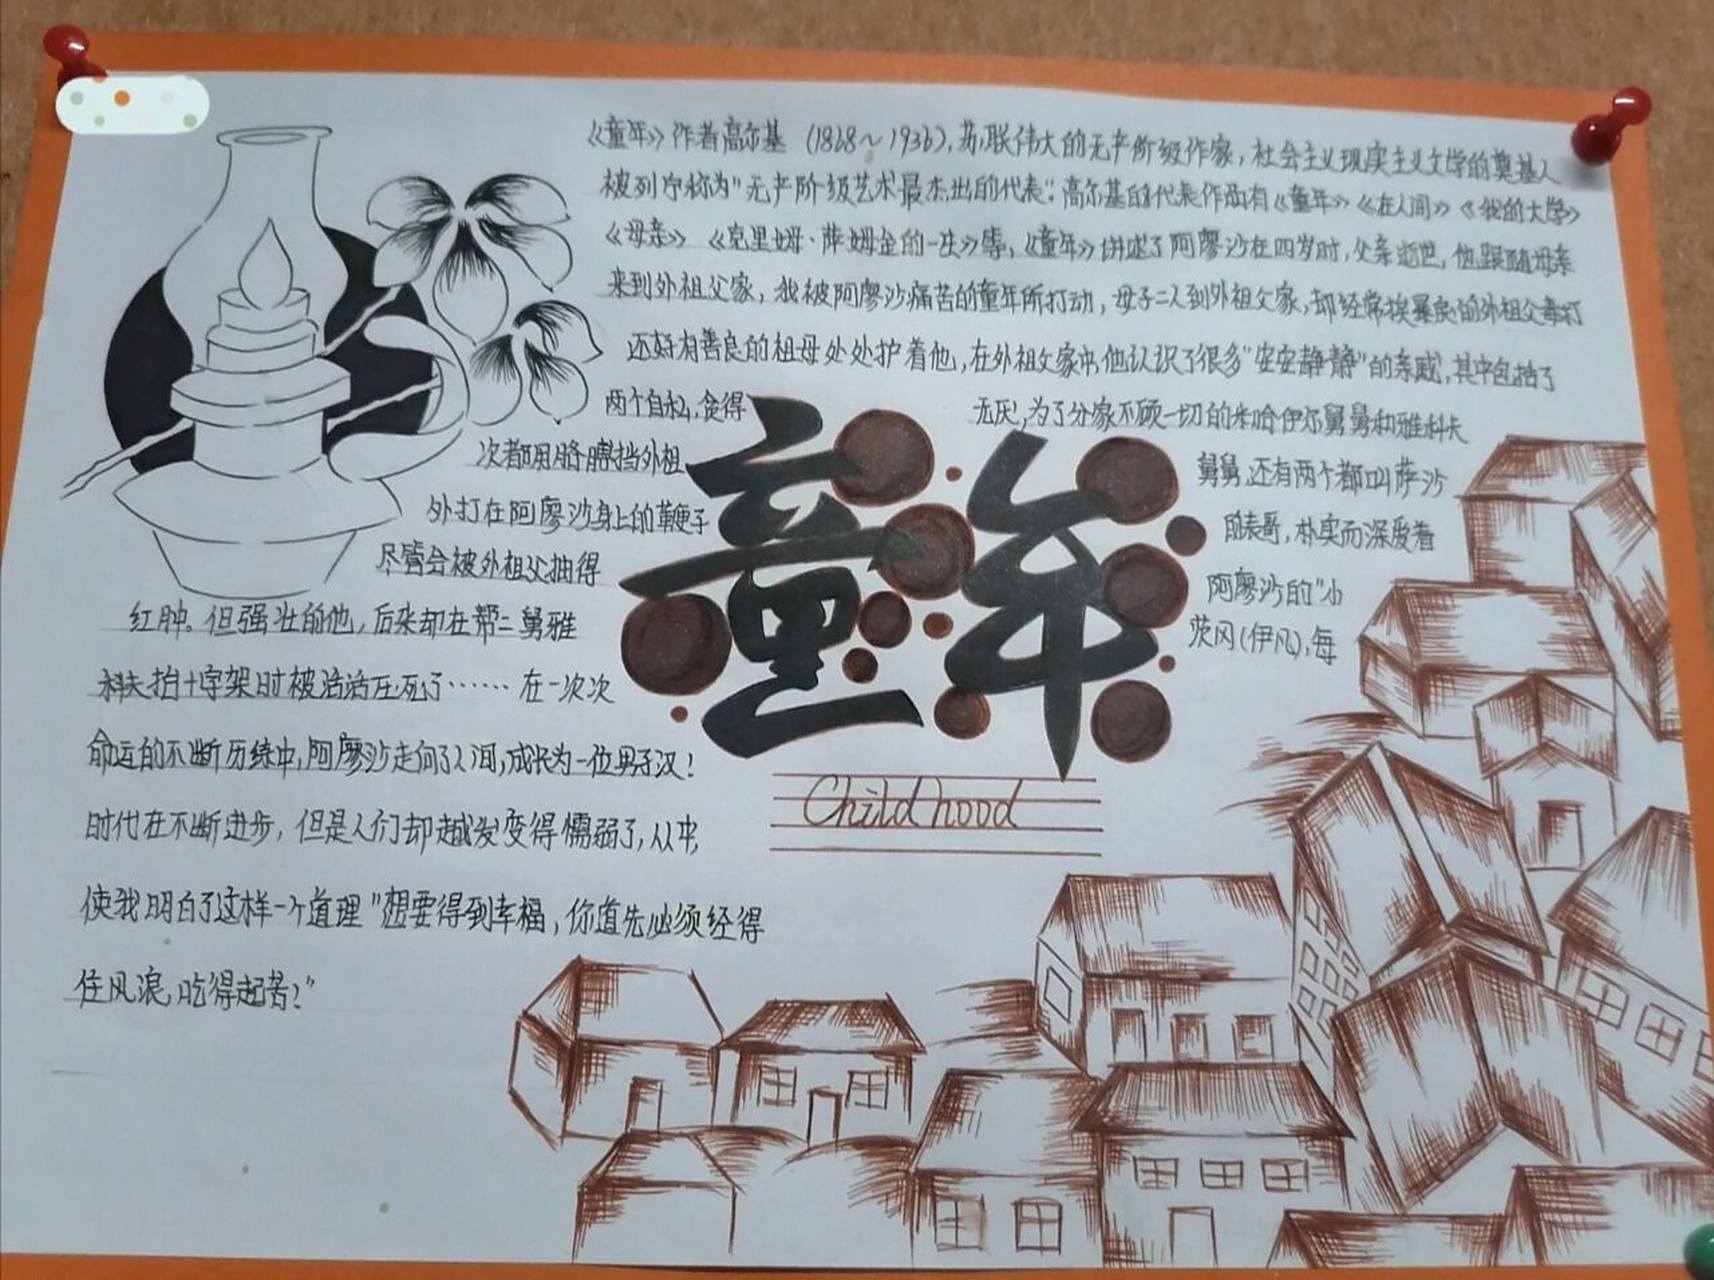 《童年》作者高尔基（1868～1936），苏联伟大的无产阶级作家，社会主义现实主义文学的奠基人
被列宁称为"无产阶级艺术最杰出的代表"：高尔基的代表作品有《童年》《在人间》《我的大学》
《母亲》《克里姆·萨姆金的一生》等，《童年》讲述了阿廖沙在四岁时，父亲逝世，他跟随母亲
来到外祖父家，我被阿廖沙痛苦的童年所打动，母子二人到外祖父家，却经常挨暴戾的外祖父毒打
还好有善良的祖母处处护着他，在外祖父家中他认识了很多"安安静静"的亲戚，其中包括了
两个自私，贪得
无厌，为了分家不顾一切的米哈伊尔舅舅和雅科夫
舅舅，还有两个都叫萨沙
的表哥，朴实而深爱着
阿廖沙的"小
茨冈（伊凡），每
次都用胳膊挡外祖
外打在阿廖沙身上的鞭子
尽管会被外祖父抽得
红肿。但强壮的他，后来却在帮二舅雅
科夫抬十字架时被活活压死了…… 在一次次
命运的不断历练中，阿廖沙走向了人间，成长为一位男子汉！
时代在不断进步，但是人们却越发变得懦弱了，从中，
使我明白了这样一个道理"想要得到幸福，你首先必须经得
住风浪，吃得起苦？"
童年
Childhood